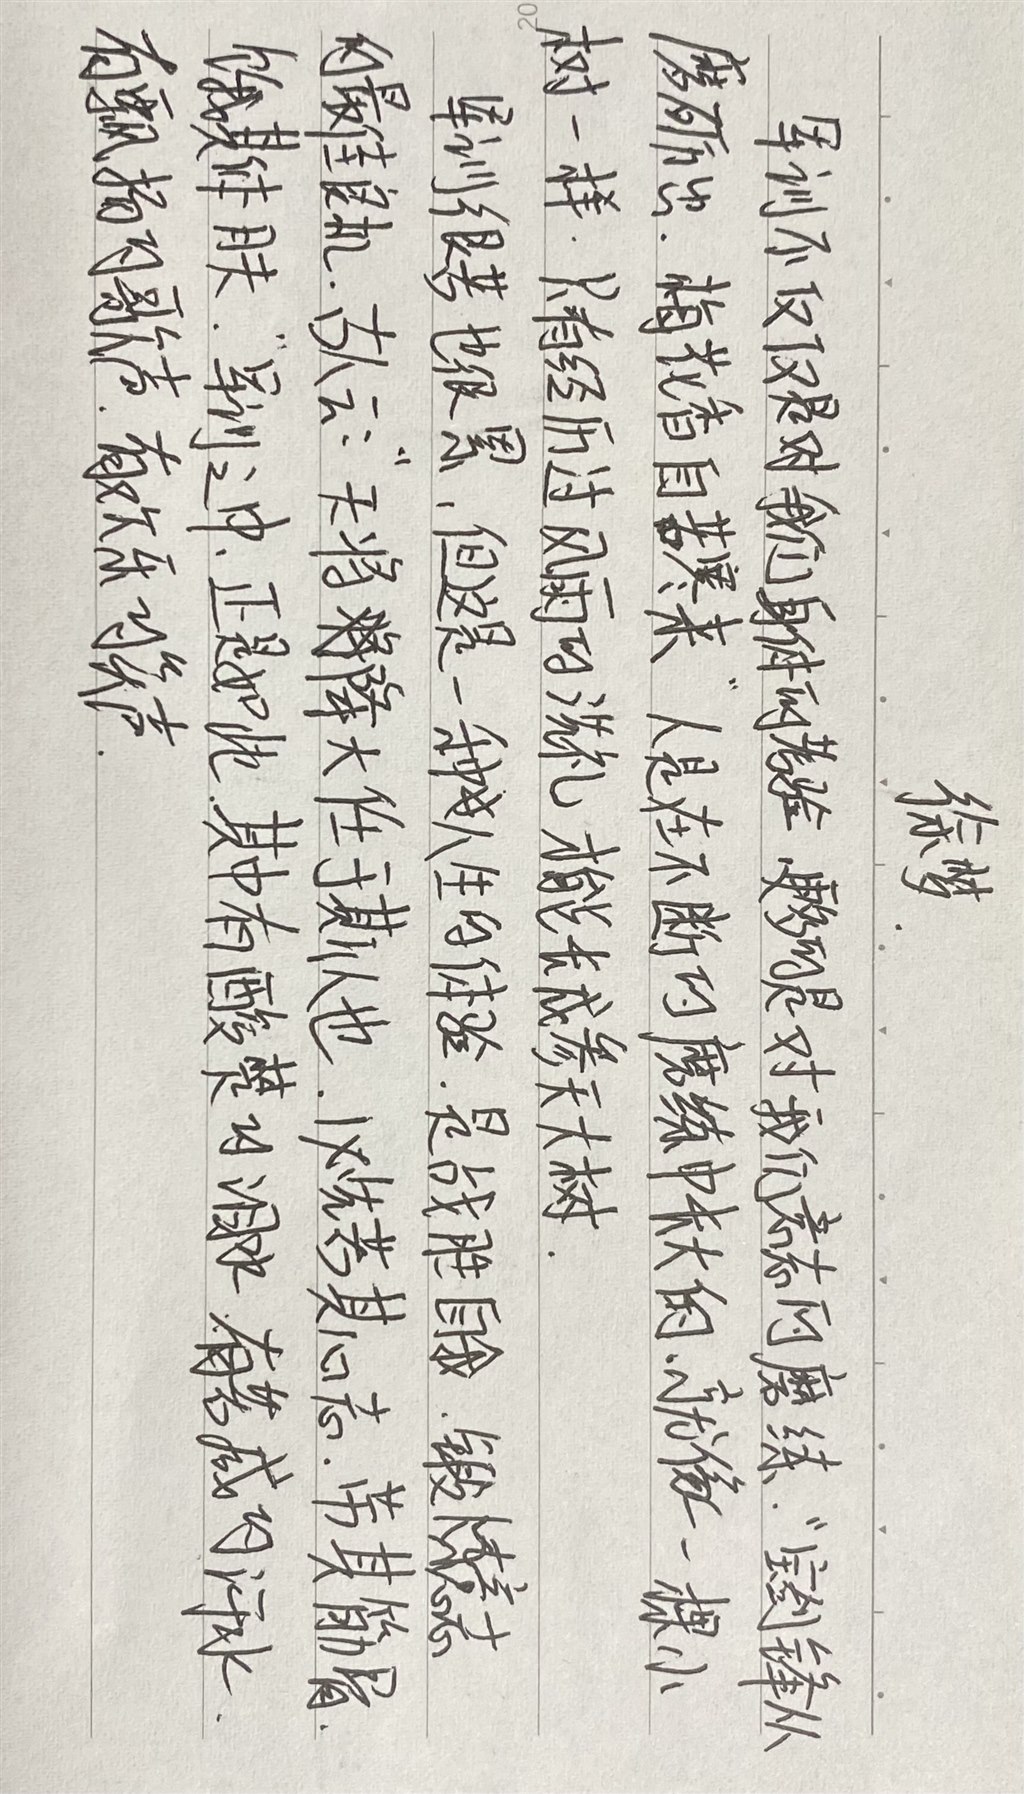 徐梦.
军训不仅仅是对我们身体的考验 更多的是对我们意志的磨练."宝剑锋从
磨砺出.梅花香自苦寒来"人是在不断的磨练中长大的、就像一棵小
树一样.只有经历过风雨的洗礼才能长成参天大树.
军训很苦也很累,但这是一种人生的体验.是战胜自我.锻炼意志
的最佳良机.古人云:"天将降大任于其人也.必先苦其心志.劳其筋骨.
饿其体肤."军训之中.正是如此.其中有酸楚的泪水.有苦咸的汗水.
有飘扬的歌结.有欢乐的结.
20